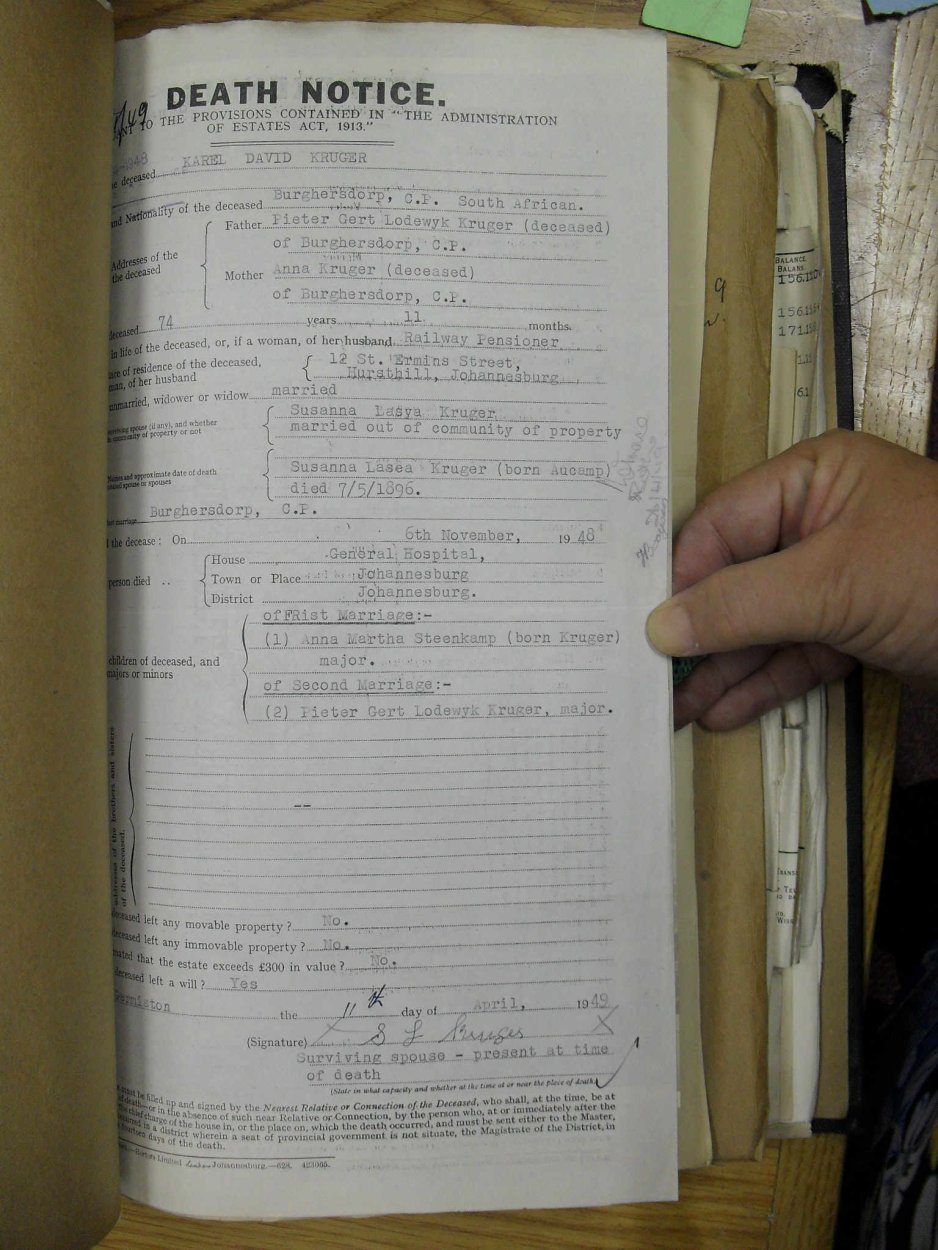 7/49
DEATH NOTICE.
TO THE PROVISIONS CONTAINED IN "THE ADMINISTRATION
OF ESTATES ACT, 1913."
1948
deceased KAREL DAVID KRUGER
and Nationality of the deceased Burghersdorp, C.P. South African.
Father Pieter Gert Lodewyk Kruger (deceased)
of Burghersdorp, C.P.
Addresses of the
the deceased
Mother Anna Kruger (deceased)
of Burghersdorp, C.P.
deceased 74 years 11 months.
in life of the deceased, or, if a woman, of her husband Railway Pensioner
ce of residence of the deceased,
man, of her husband
12 St. Ermins Street,
Hursthill, Johannesburg
unmarried, widower or widow married
spouse (if any), and whether
community of property or not
Susanna Lasya Kruger
married out of community of property
Names and approximate date of death
spouse or spouses
Susanna Lasea Kruger (born Aucamp)
died 7/5/1896.
marriage Burghersdorp, C.P.
the decease: On 6th November, 1948
person died ..
House General Hospital,
Town or Place Johannesburg
District Johannesburg.
children of deceased, and
majors or minors
of FRist Marriage:-
(1) Anna Martha Steenkamp (born Kruger)
major.
of Second Marriage:-
(2) Pieter Gert Lodewyk Kruger, major.
addresses of the brothers and sisters
of the deceased.
--
deceased left any movable property? No.
deceased left any immovable property? No.
mated that the estate exceeds £300 in value? No.
deceased left a will? Yes
ermiston the 11th day of April, 1949
(Signature) S L Kruger
Surviving spouse - present at time
of death
(State in what capacity and whether at the time at or near the place of death)
must be filled up and signed by the Nearest Relative or Connection of the Deceased, who shall, at the time, be at
of death—or in the absence of such near Relative or Connection, by the person who, at or immediately after the
the chief charge of the house in, or the place on, which the death occurred, and must be sent either to the Master,
curred in a district wherein a seat of provincial government is not situate, the Magistrate of the District, in
fourteen days of the death.
Hortors Limited Johannesburg.—628. 423065.
BALANCE
BALANS
156.
156.
171.